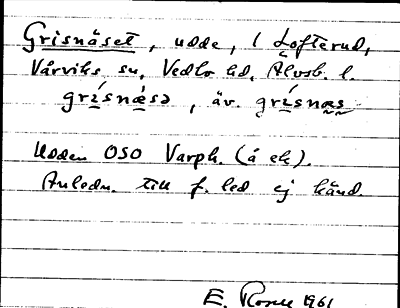 Grisnäset, udde, i Lofterud,
Vårviks sn, Vedbo hd, Älvsb. l.
gri̱snæ̱sə, äv. gri̱snæs
Udden OSO Varph. (å ek).
Anledn. till f. led ej känd.
E. Rosell 1961